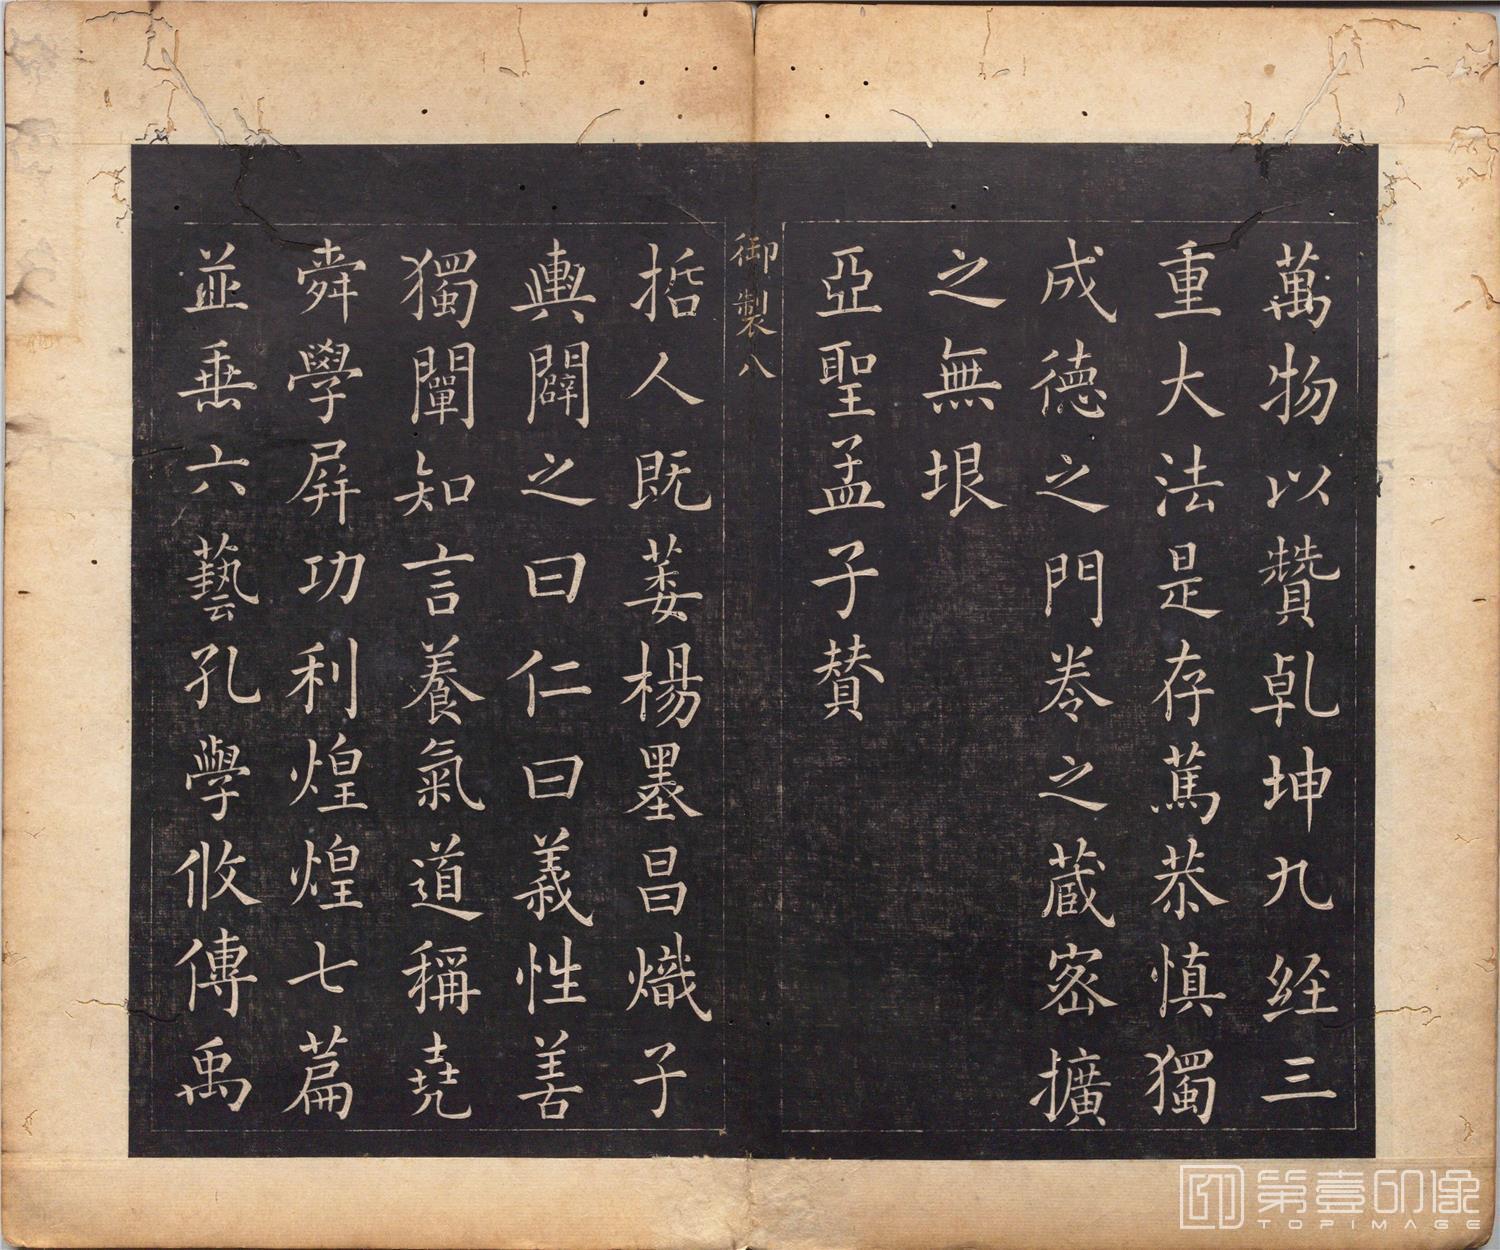 萬物以贊乹坤九經三
重大法是存萬恭慎獨
成德之門卷之藏宻擴
之無垠
亞聖孟子賛
御製八
哲人既萎楊墨昌熾子
輿闢之曰仁曰義性善
獨闡知言養氣道稱堯
舜學屏功利煌煌七篇
並垂六藝孔學攸傳禹
第壹印像
TOPIMAGE